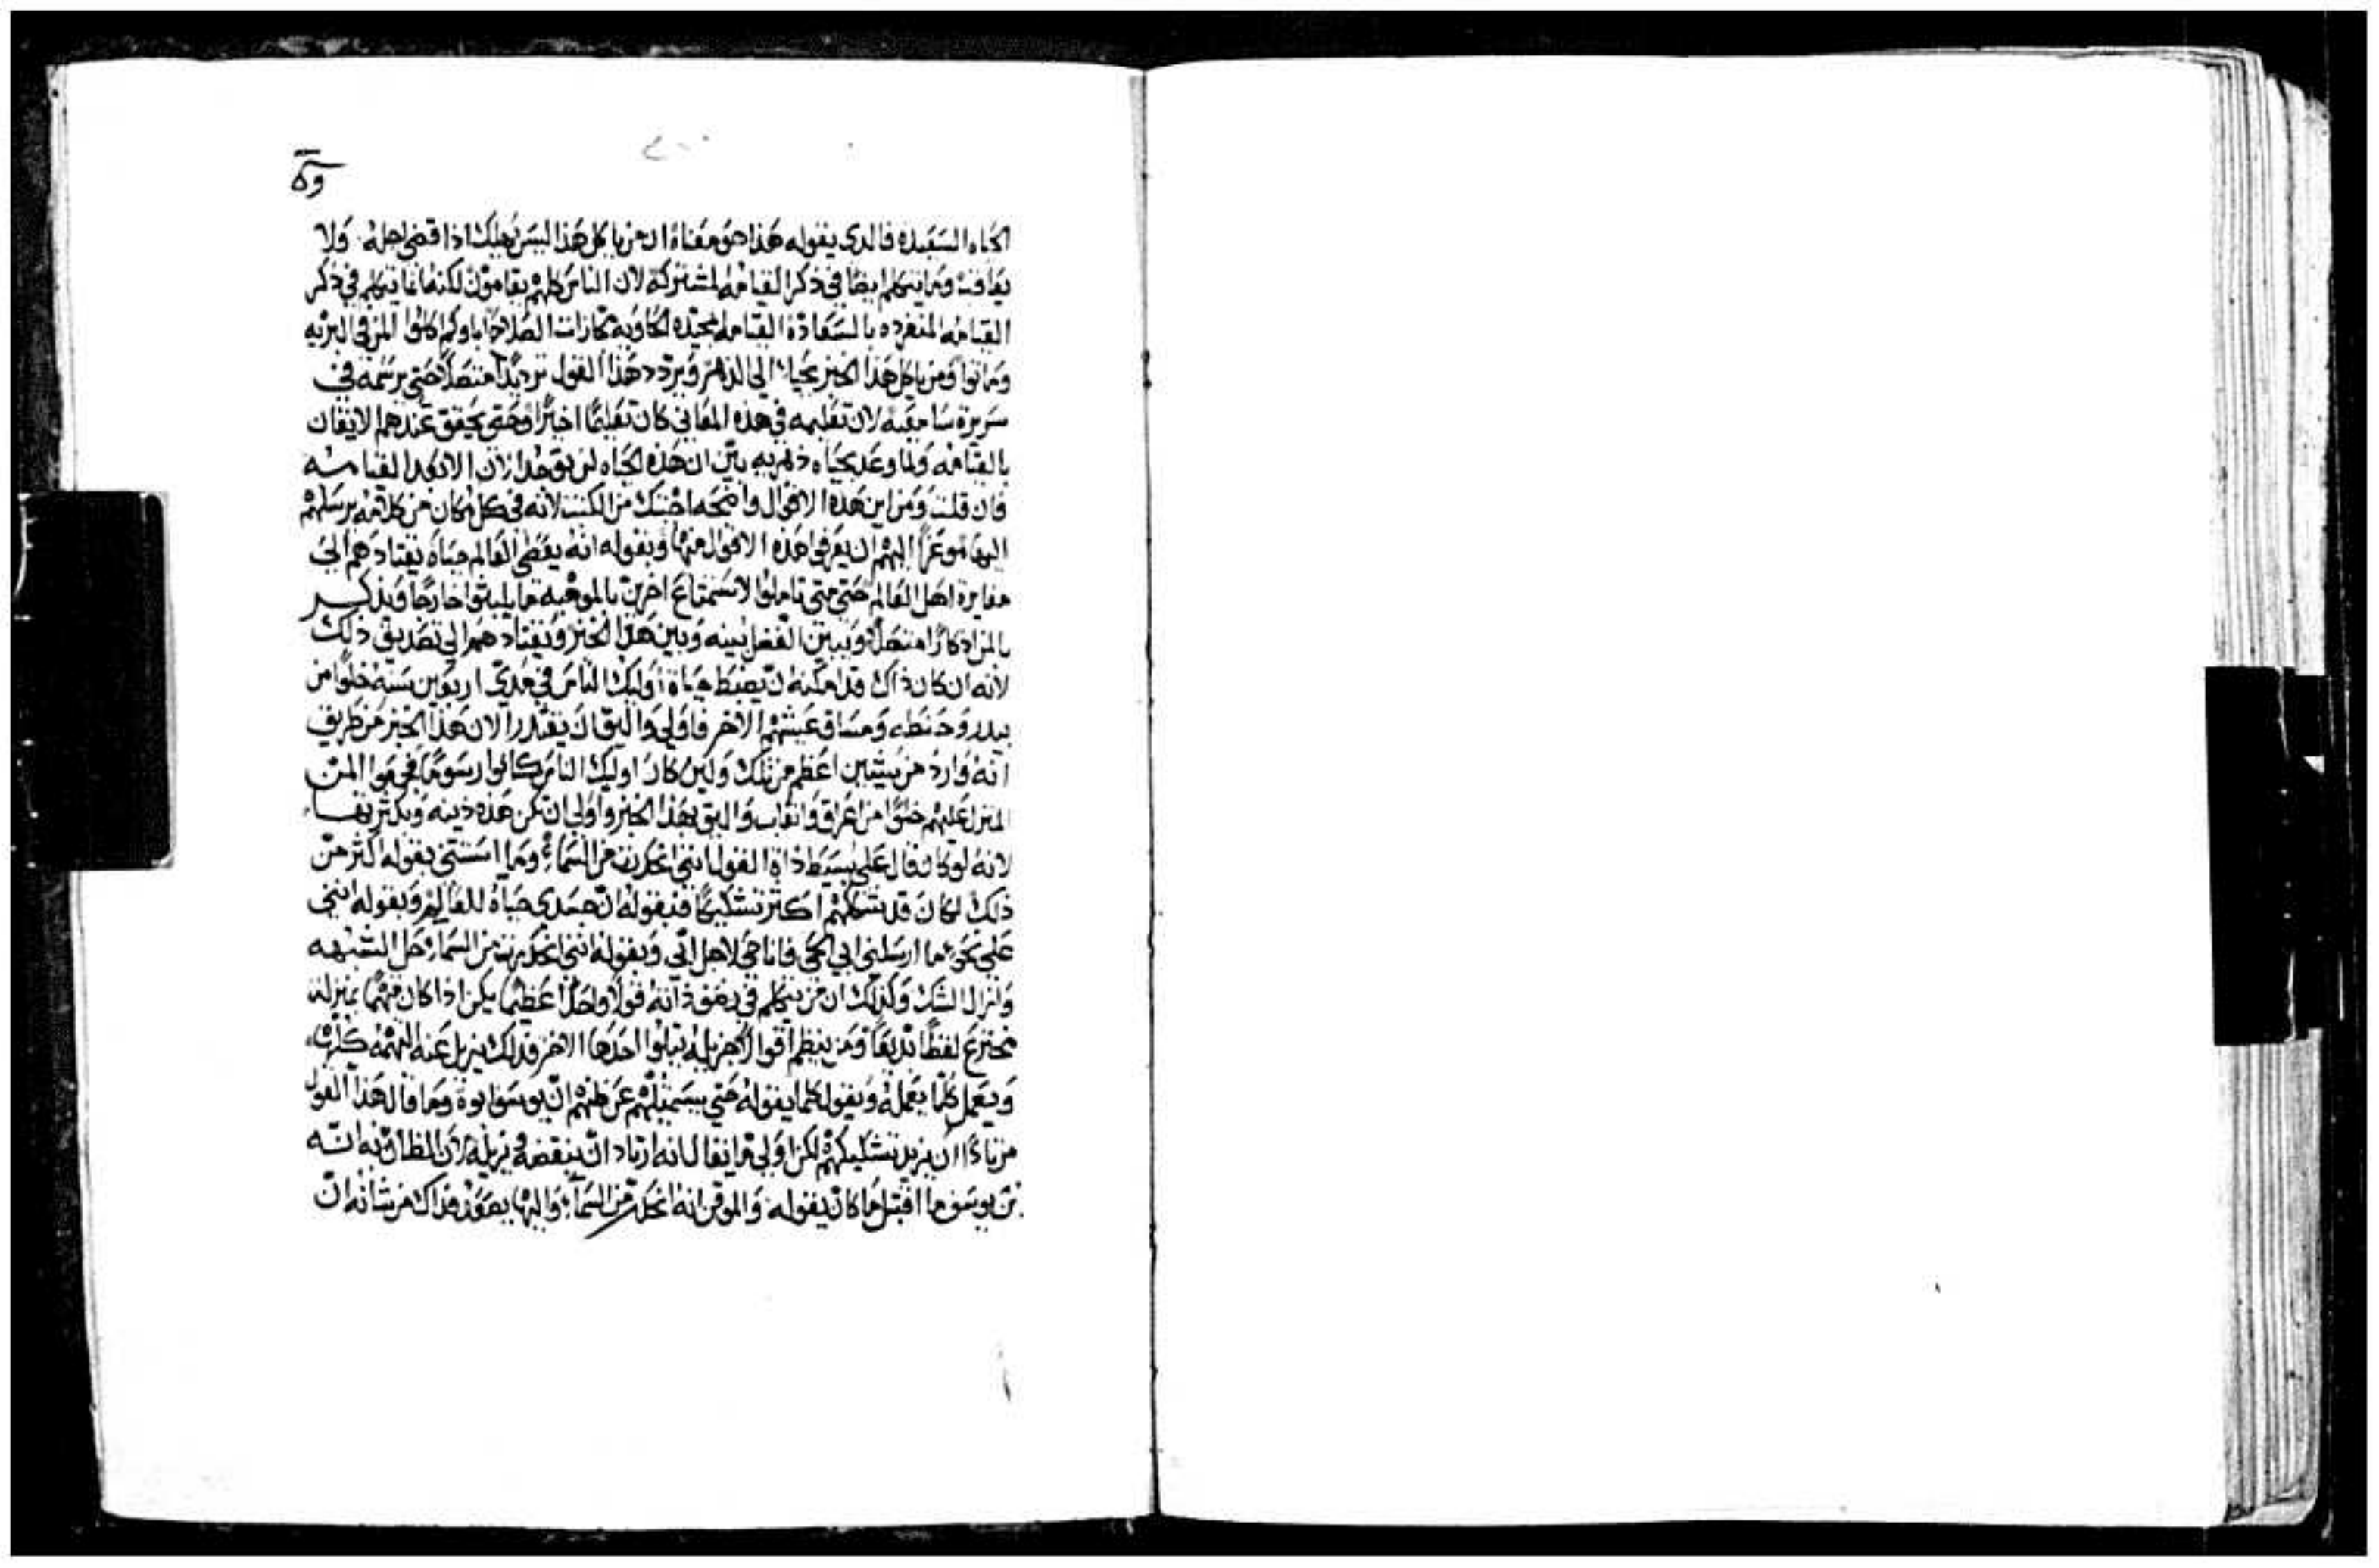 الحياه السعيده فالدي يقوله هذا هو معناه ان من ياكل هذا ليس يهلك اذا قضي اجله ولا
يعاقب وما يتكلم ايضا في ذكر القيامه المشتركه لان الناس كلهم يقامون لكنه انما يتكلم في ذكر
القيامه المنفرده بالسعاده القيامه المجيده الحاويه مجازات الصلاح اباوكم اكلوا المن في البريه
وماتوا ومن ياكل هذا الخبز يحيا الي الدهر ويردد هذا القول ترديدا متصلا حتي يرسمه في
سريرة سامعيه لان تعليمه في هذه المعاني كان تعليما اخيرا وحتي يحقق عندهم الايقان
بالقيامه ولما وعد بحياه دهريه بين ان هذه الحياه لن توجد الان الا بعد القيامه
فان قلت ومن اين هذه الاقوال واضحه اجبتك من الكتب لانه في كل مكان من كلامه يرسلهم
اليها موعزا اليهم ان يعرفوا هذه الاقوال منها وبقوله انه يعطي العالم حياه يقتادهم الي
مغايرة اهل العالم حتي متي تاملوا لاستمتاع اخرين بالموهبه ما يلبثوا خارجا ويذكر
بالمن ادكارا متصلا ويبين الفصل بينه وبين هذا الخبز ويقتادهم الي تصديق ذلك
لانه ان كان ذاك قد امكنه ان يضبط حياة اوليك الناس في مدي اربعين سنه خلوا من
بيدر وحنطه ومساق عيشهم الاخر فاولي واليق ان يقتدر الان هذا الخبز من طريق
انه وارد من اعظم من تلك ولين كان اوليك الناس كانوا رسوما فجمعوا المن
المنزل عليهم خلوا من اعراق واتعاب واليق بهذا الخبز واولي ان تكن هذه
لانه لو كان قال علي بسيط ذات القول انني انحدرت من السماء وما استثني بقوله اكثر من
ذلك لكان قد شككهم اكثر تشكيكا فبقوله ان جسدي حياة للعالم وبقوله انني
علي نحو ما ارسلني ابي الحي فانا حي لاجل ابي وبقوله انني انحدرت من السماء حل الشبهه
وازال الشك وكذلك ان من يتكلم في بعوذ انه قولا واحدا عظيما يكن اذا كان متهما بمنزلة
مخترع لفظا بديعا ومن ينظم اقوالا جزيله يتلوا احدها الاخر فذلك يزيل عنه التهمه كلها
ويعمل كلما يعمله ويقول كلما يقوله حتي يستميلهم عن ظنهم ان يوسف ابوه وما قال هذا القول
مريدا ان يزيد تشكيكهم لكن اولي ما يقال انه ارتاد ان ينقضه ويزيله لان الظان به انه
بن يوسف ما اقتبل ما كان يقوله والموقن انه انحدر من السماء واليها يصعد فذاك من شانه ان